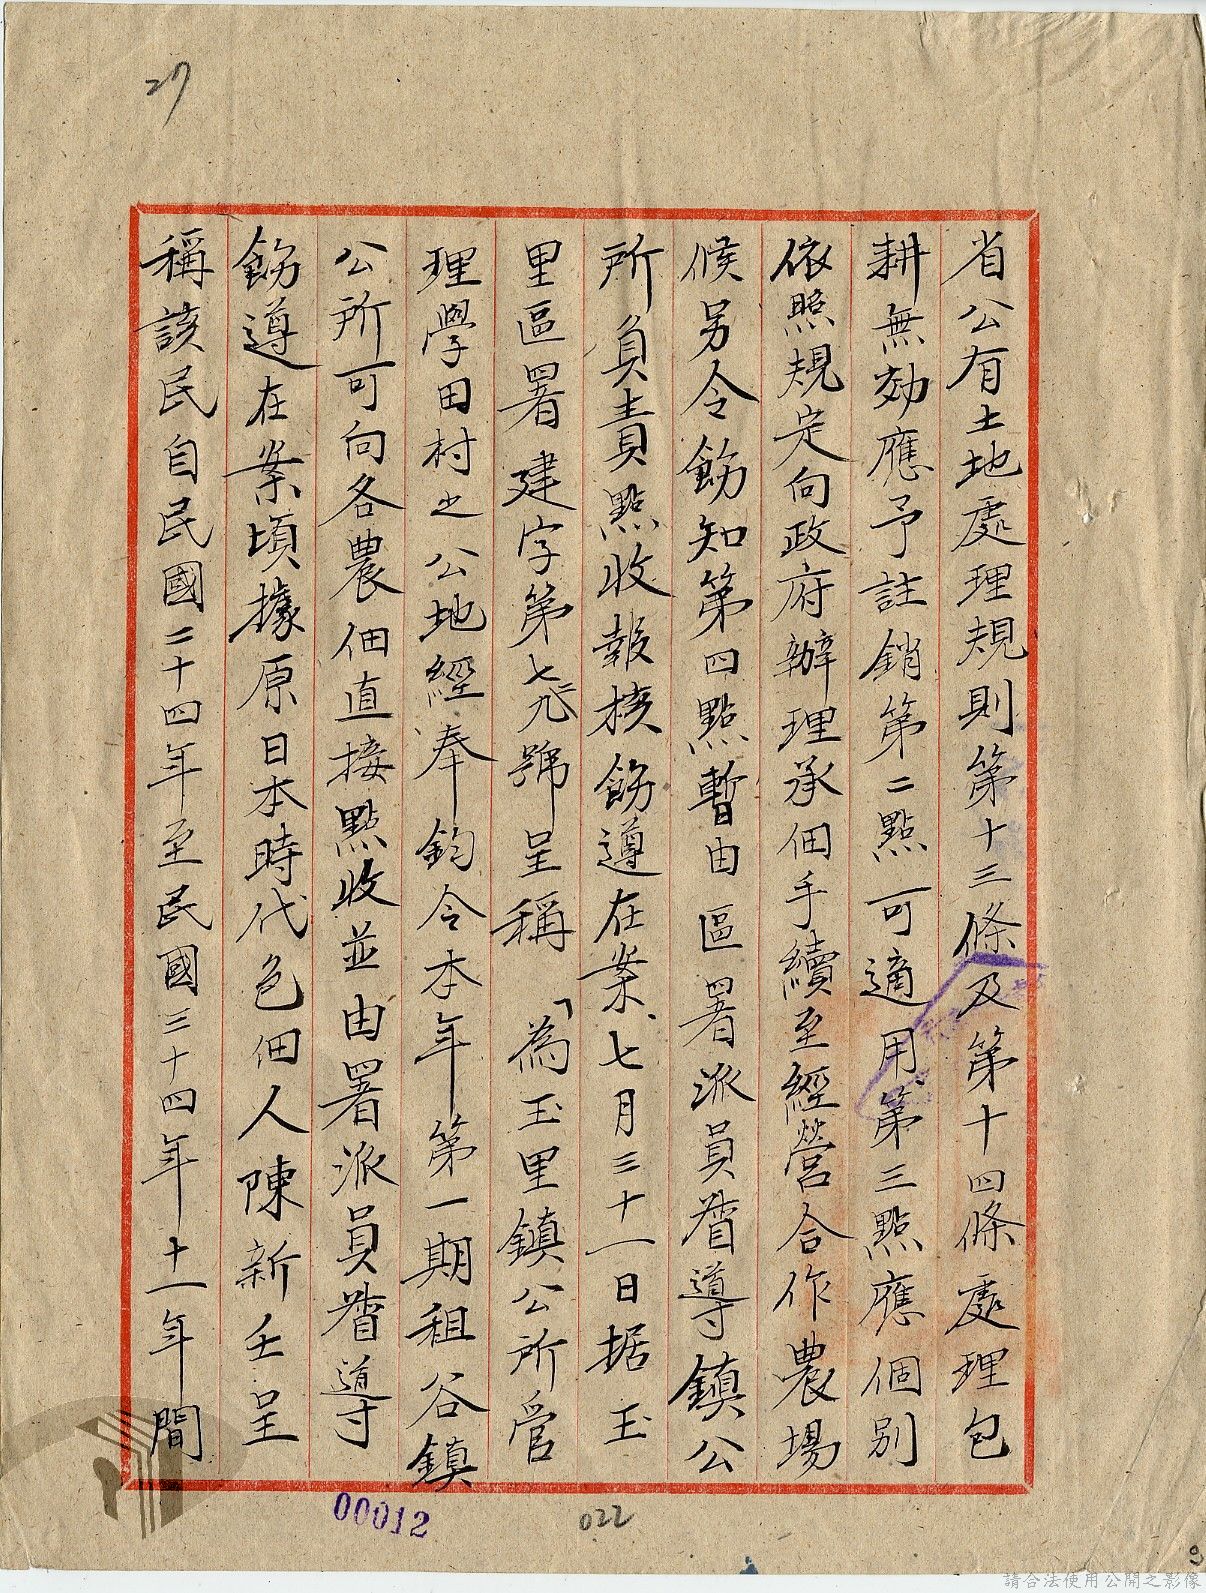 27
省公有土地處理規則第十三條及第十四條處理包
耕無効應予註銷第二點可適用第三點應個別
依照規定向政府辦理承佃手續至經營合作農場
候另令飭知第四點暫由區署派員督導鎮公
所負責點收報核飭遵在案、七月三十一日据玉
里區署建字第號呈稱「為玉里鎮公所管
理學田村之公地經奉鈞令本年第一期租谷鎮
公所可向各農佃直接點收並由署派員督導
飭遵在案頃據原日本時代包佃人陳新壬呈
稱該民自民國二十四年至民國三十四年十一年間
00012
022
請合法使用公開之影像